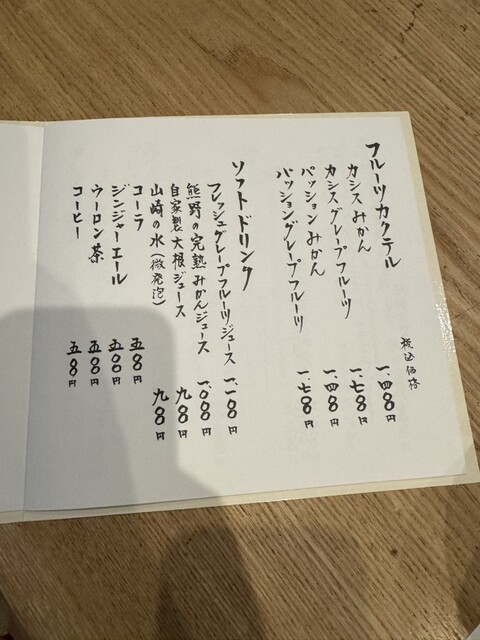 フルーツカクテル
税込価格
カシスみかん 一、四〇〇円
カシスグレープフルーツ 一、七〇〇円
パッションみかん 一、四〇〇円
パッショングレープフルーツ 一、七〇〇円
ソフトドリンク
フレッシュグレープフルーツジュース 一、一〇〇円
熊野の完熟みかんジュース 一、〇〇〇円
自家製大根ジュース 九〇〇円
山崎の水(微発泡) 九〇〇円
コーラ 五〇〇円
ジンジャーエール 五〇〇円
ウーロン茶 五〇〇円
コーヒー 五〇〇円